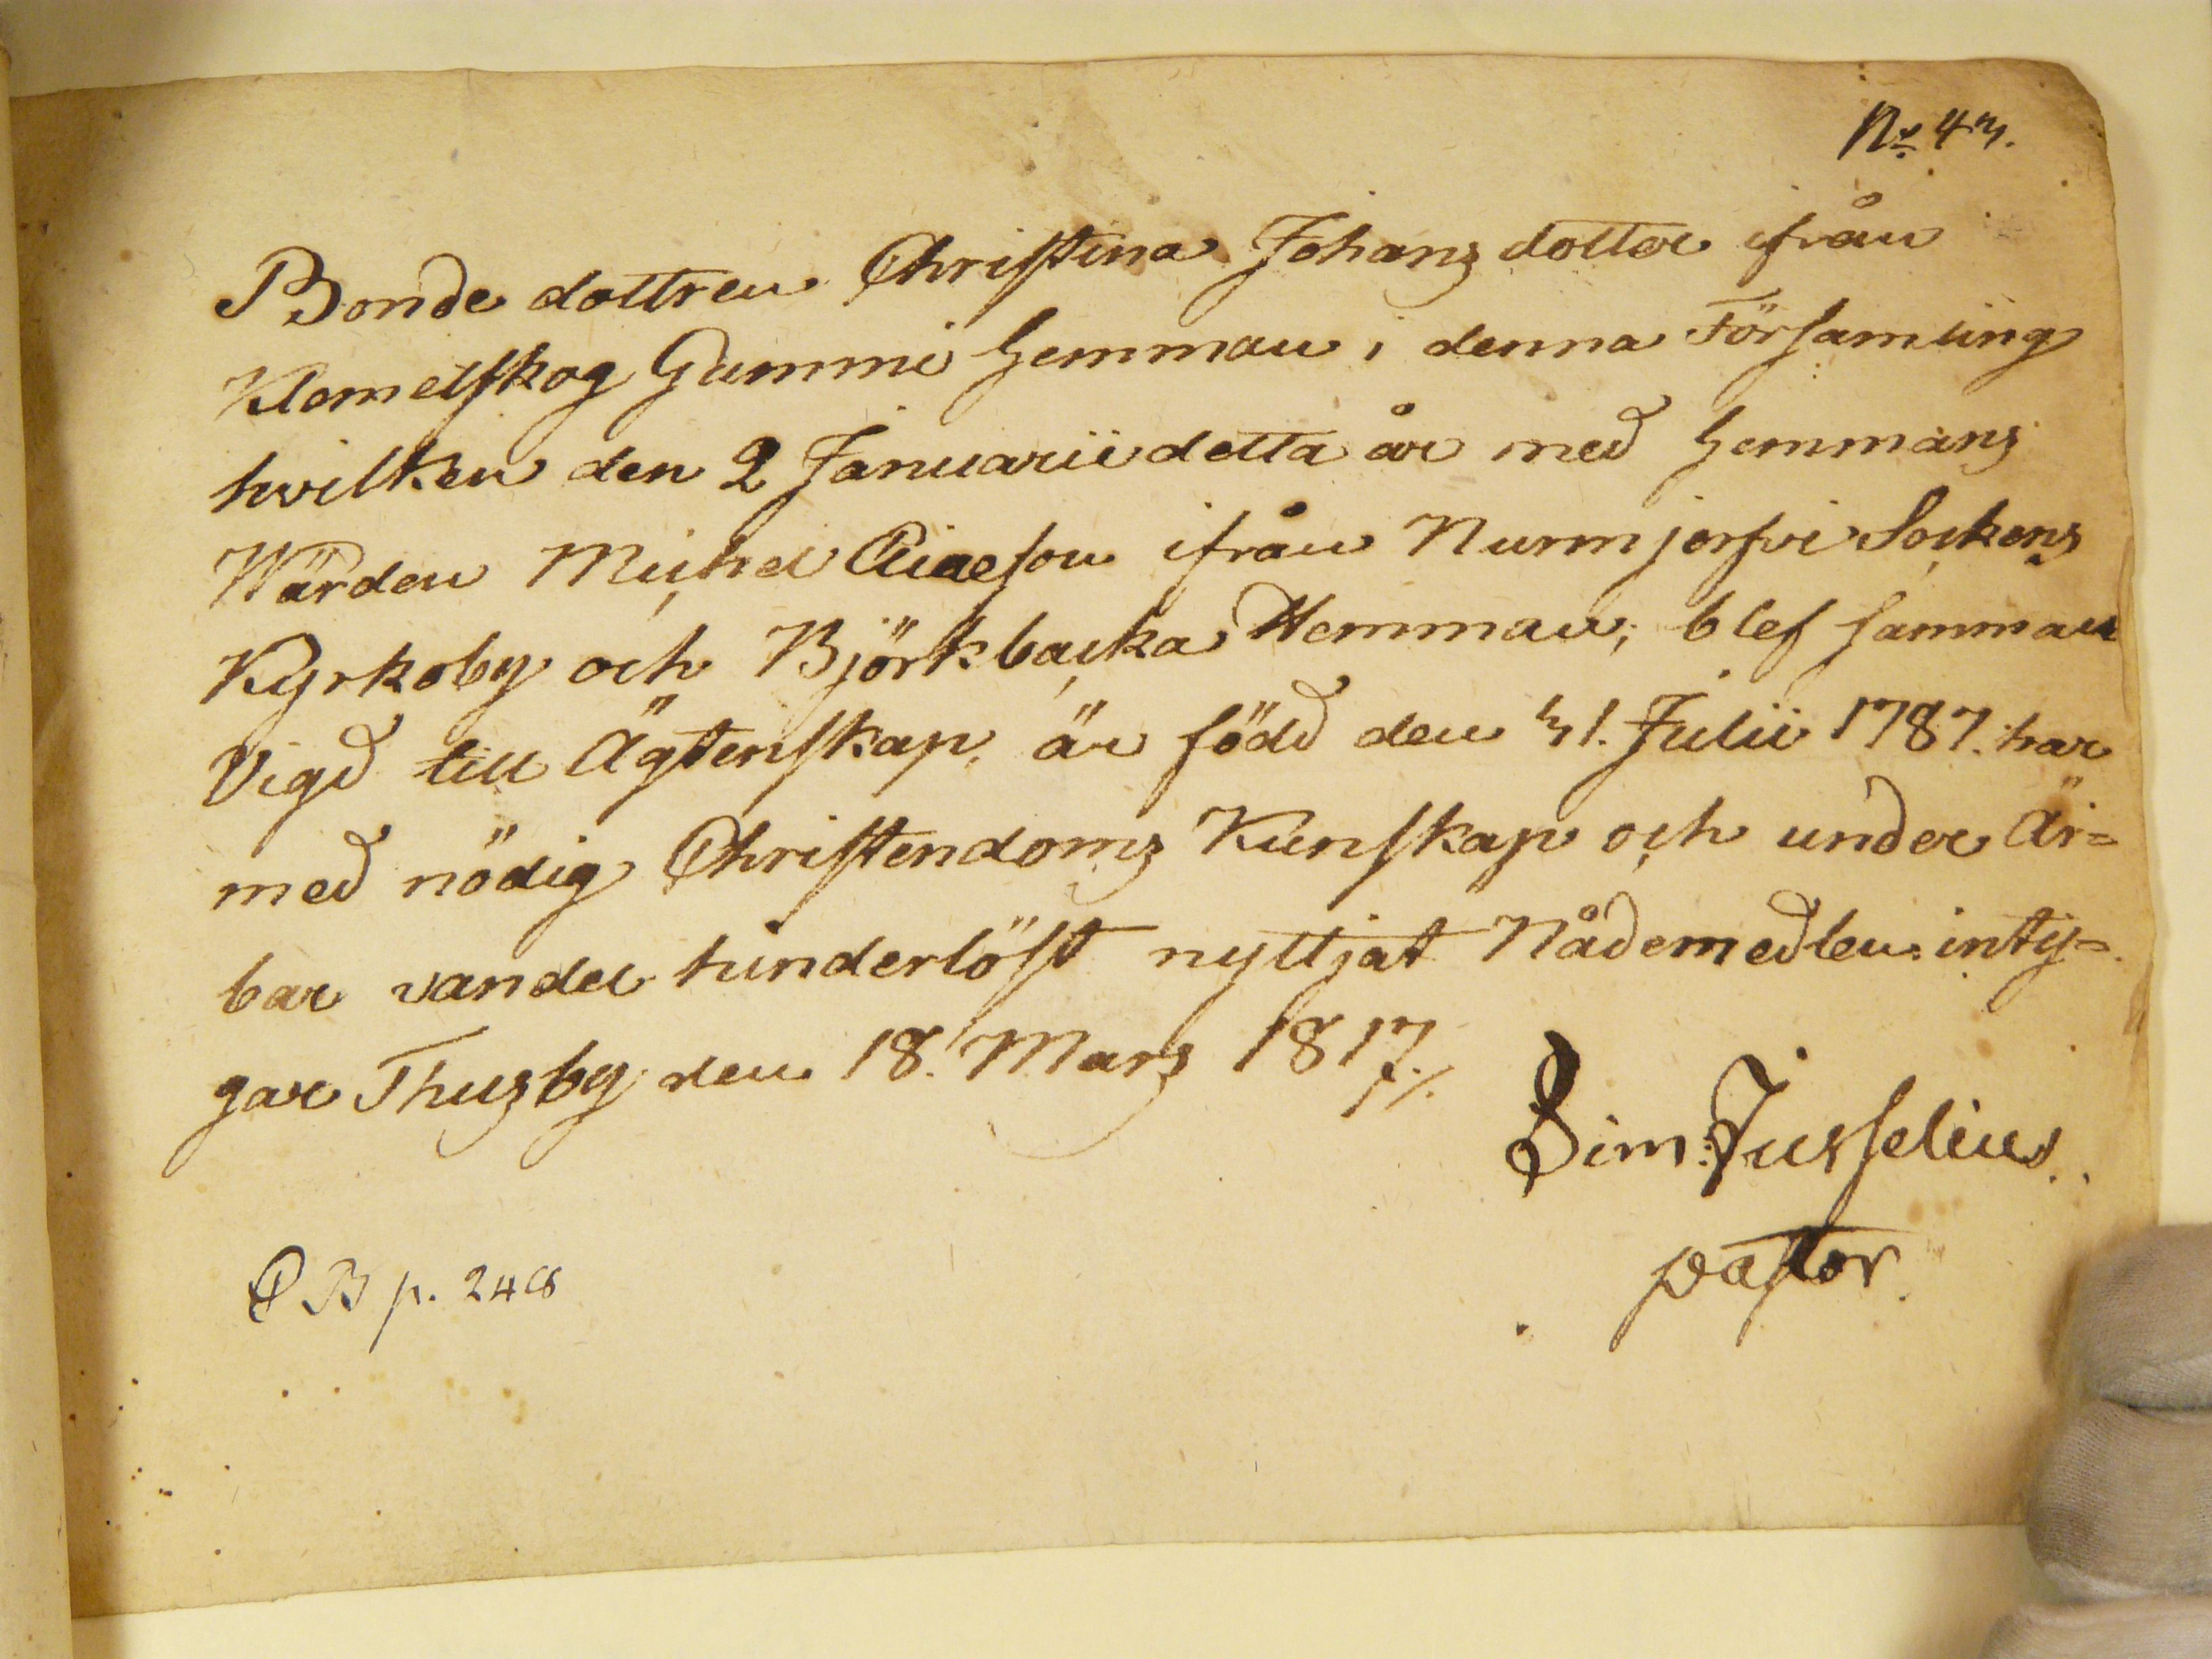 No 43.
Bonde dottren Christina Johans dotter ifrån
Klemetskog Gummi Hemman i denna Församling
hvilken den 2 Januarii detta år med Hemmans
Wärden Michel ifrån Nurmjerfvi Sockens
Kyrkoby och Björkbacka Hemman, blef samman
Vigd till Ägtenskap, är född den 31. Julii 1787. har
med nödig Christendoms Kunskap och under Är=
bar vandel hinderlöst nyttjat Nådemedlen. inty=
gar Thusby den 18. Mars 1817.
Sim: Jusselius.
pastor.
C B p. 248